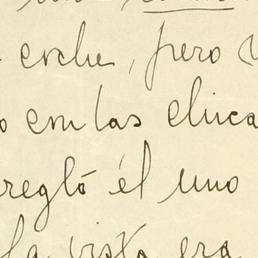 coche, pero
con las chica
regló él uno
la vista era